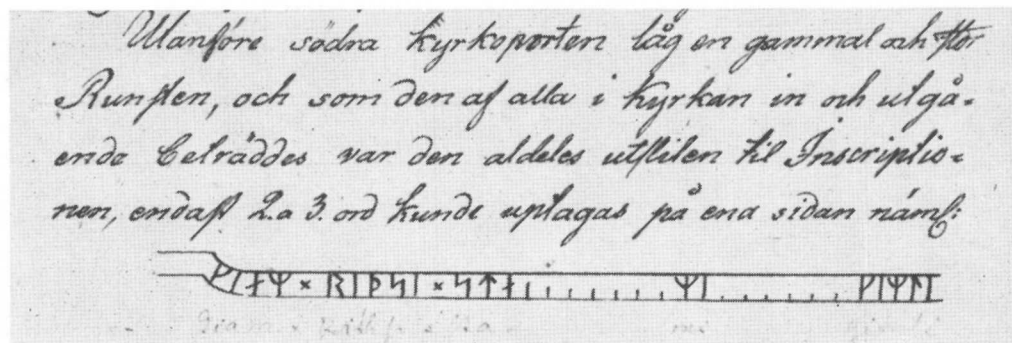 Utanföre södra Kyrkoporten låg en gammal och stor
Runsten, och som den af alla i Kyrkan in och utgå=
ende beträddes var den aldeles utsliten til Inscriptio=
nen, endast 2. a 3. ord kunde uptagas på ena sidan näml:
× ᚱᛁᚦᛋᛁ × ᛋᛏᛅ ᛘᛁ
mi